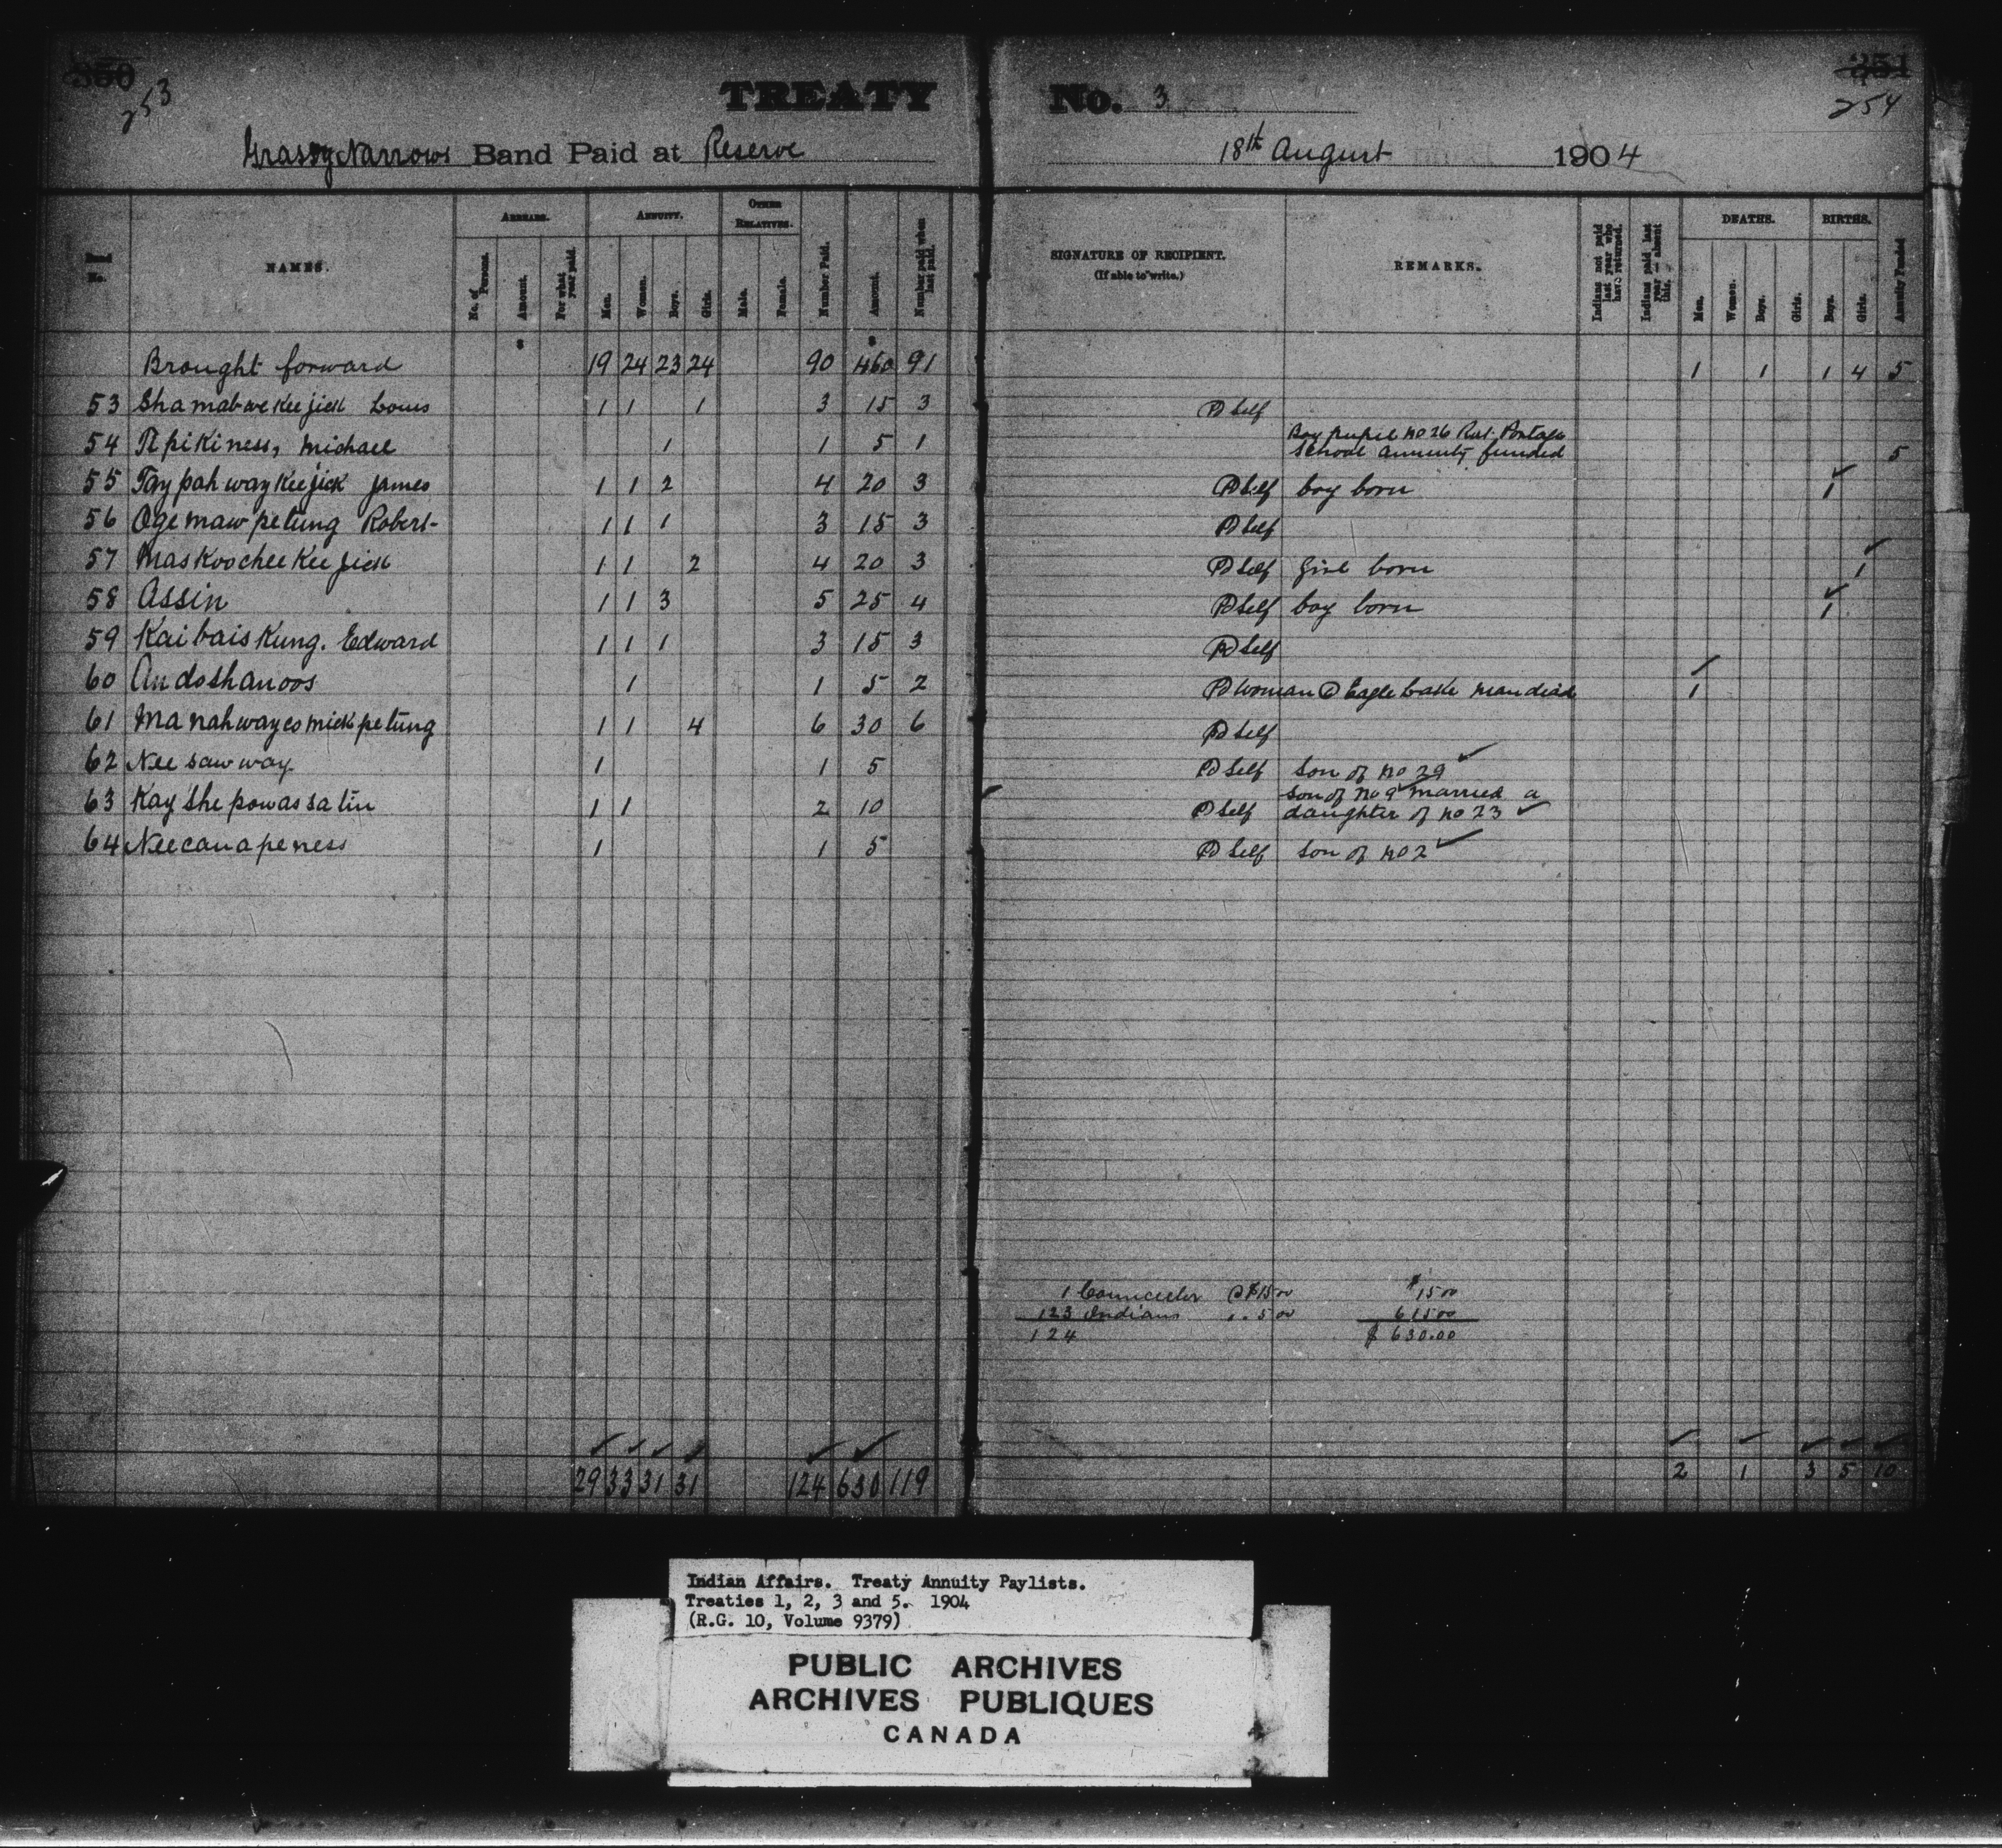 350 351
253 254
TREATY No. 3
Grassy Narrows Band Paid at Reserve 18th August 1904
No. NAMES. ARREARS. ANNUITY. OTHER RELATIVES. Number Paid. Amount. Number paid when last paid. SIGNATURE OF RECIPIENT. (If able to write.) REMARKS. Indians not paid last year who have returned. Indians paid last year — absent this. DEATHS. BIRTHS. Annuity Funded
No. of Persons. Amount. For what year paid. Men. Women. Boys. Girls. Male. Female. Men. Women. Boys. Girls. Boys. Girls.
$ $
Brought forward 19 24 23 24 90 460 91 1 1 1 4 5
53 Shamabwekeejick Louis 1 1 1 3 15 3 Pd Self
54 Apikiness, Michael 1 1 5 1 Boy pupil no 26 Rat Portage
School annuity funded 5
55 Taypahwaykeejick James 1 1 2 4 20 3 Pd Self boy born 1
56 Ogemawpetung Robert 1 1 1 3 15 3 Pd Self
57 Maskoocheekeejick 1 1 2 4 20 3 Pd Self girl born 1
58 Assin 1 1 3 5 25 4 Pd Self boy born 1
59 Kaibaiskung. Edward 1 1 1 3 15 3 Pd Self
60 Andoshanoos 1 1 5 2 Pd Woman @ Eagle Lake man died 1
61 Manahwaycomickpetung 1 1 4 6 30 6 Pd Self
62 Neesawway 1 1 5 Pd Self Son of no 29
63 Kayshepowassatin 1 1 2 10 Pd Self Son of no 9 married a
daughter of no 23
64 Neecanapeness 1 1 5 Pd Self Son of no 2
1 Councillor @ $15 00 $ 15 00
123 Indians " 5 00 615 00
124 $ 630.00
29 33 31 31 124 630 119 2 1 3 5 10
Indian Affairs. Treaty Annuity Paylists.
Treaties 1, 2, 3 and 5. 1904
(R.G. 10, Volume 9379)
PUBLIC ARCHIVES
ARCHIVES PUBLIQUES
CANADA